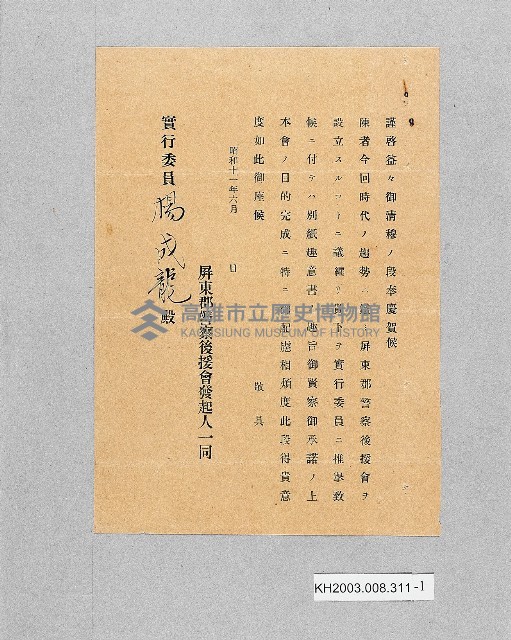 謹啓益々御清穆ノ段奉慶賀候
陳者今回時代ノ趨勢ニ鑑ミ屏東郡警察後援會ヲ
設立スルコトニ議纏リ貴下ヲ實行委員ニ推擧致
候ニ付テハ別紙趣意書ノ趣旨御賢察御承諾ノ上
本會ノ目的完成ニ特ニ御配慮相煩度此段得貴意
度如此御座候 敬具
昭和十一年六月 日
屏東郡警察後援會發起人一同
實行委員 楊成龍殿
高雄市立歷史博物館
KAOHSIUNG MUSEUM OF HISTORY
KH2003.008.311-1